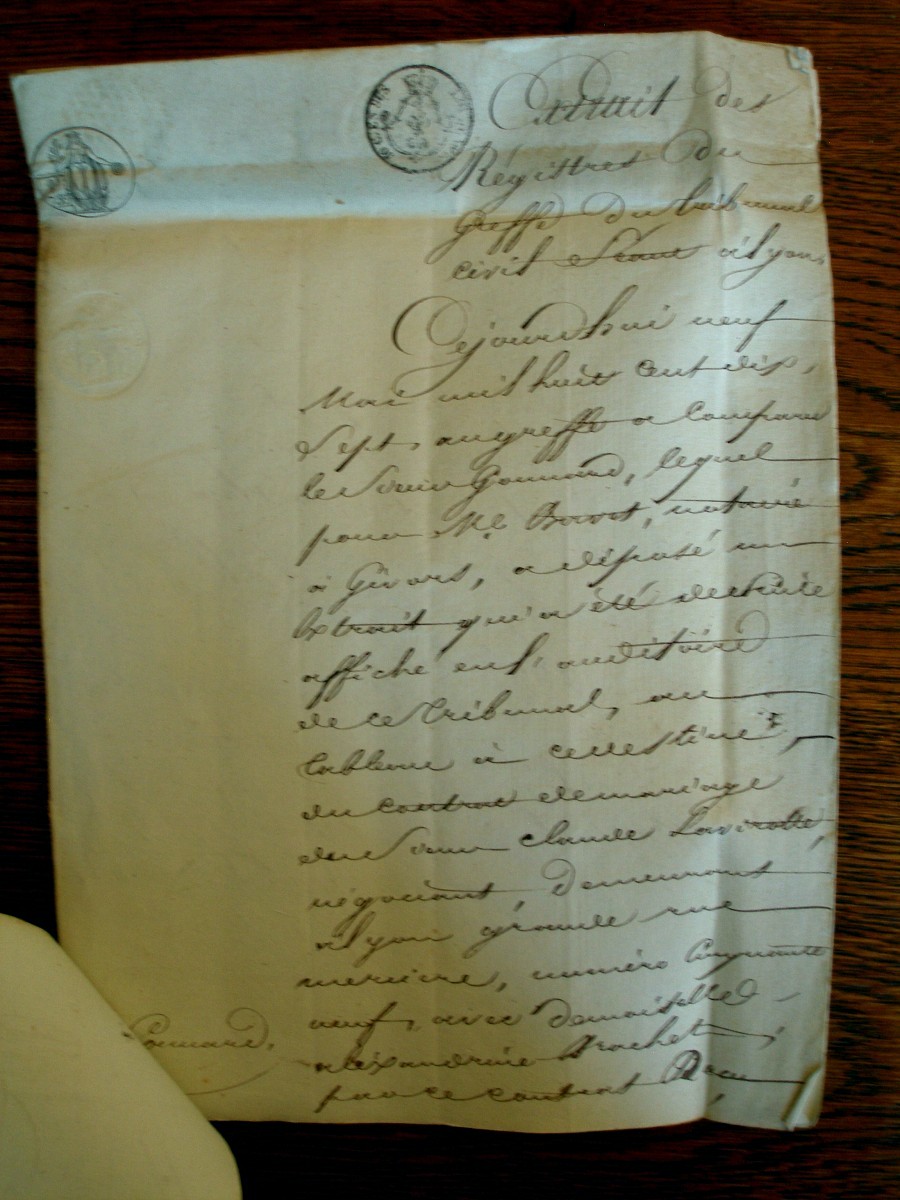 Extrait des
Régistres du
Greffe du tribunal
civil Séant à Lyon,
Cejourd'hui neuf
Mai mil huit cent dix,
Sept, au greffe a Comparu
le Sieur Gonnard, lequel
pour Me. Boirot, notaire
à Givors, a déposé un
Extrait qui a été de Suite
affiché en l'auditoire
de ce tribunal, au
tableau à ce destiné,
du contrat de mariage
du Sieur Claude Lavirotte,
négociant, demeurant
à Lyon grande rue
merciere, numéro Cinquante
neuf, avec demoiselle
alexandrine Brochet;
par ce contrat
Gonnard,